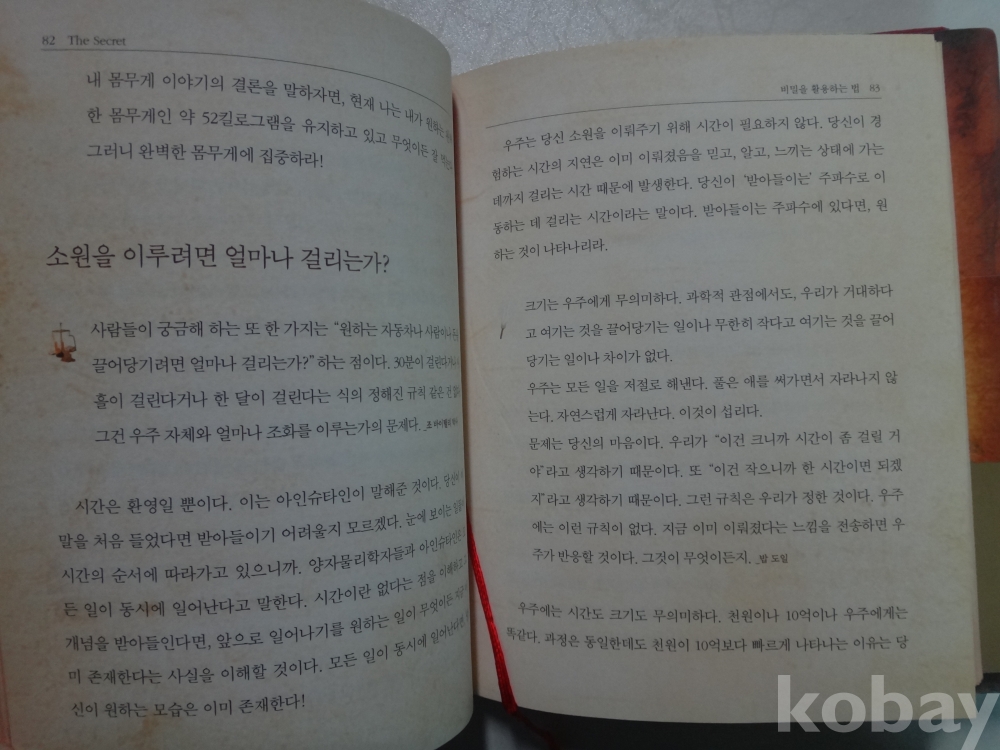 82 The Secret
내 몸무게 이야기의 결론을 말하자면, 현재 나는 내가 원하는
한 몸무게인 약 52킬로그램을 유지하고 있고 무엇이든 잘
그러니 완벽한 몸무게에 집중하라!
소원을 이루려면 얼마나 걸리는가?
사람들이 궁금해 하는 또 한 가지는 “원하는 자동차나 사람이나
끌어당기려면 얼마나 걸리는가?” 하는 점이다. 30분이 걸린다거나
흘이 걸린다거나 한 달이 걸린다는 식의 정해진 규칙 같은 건
그건 우주 자체와 얼마나 조화를 이루는가의 문제다.
시간은 환영일 뿐이다. 이는 아인슈타인이 말해준 것이다.
말을 처음 들었다면 받아들이기 어려울지 모르겠다. 눈에 보이는
시간의 순서에 따라가고 있으니까. 양자물리학자들과 아인슈타인은
든 일이 동시에 일어난다고 말한다. 시간이란 없다는 점을 이해하고
개념을 받아들인다면, 앞으로 일어나기를 원하는 일이 무엇이든
미 존재한다는 사실을 이해할 것이다. 모든 일이 동시에 일어난다면,
신이 원하는 모습은 이미 존재한다!
비밀을 활용하는 법 83
우주는 당신 소원을 이뤄주기 위해 시간이 필요하지 않다. 당신이 경
험하는 시간의 지연은 이미 이뤄졌음을 믿고, 알고, 느끼는 상태에 가는
데까지 걸리는 시간 때문에 발생한다. 당신이 ‘받아들이는’ 주파수로 이
동하는 데 걸리는 시간이라는 말이다. 받아들이는 주파수에 있다면, 원
하는 것이 나타나리라.
크기는 우주에게 무의미하다. 과학적 관점에서도, 우리가 거대하다
고 여기는 것을 끌어당기는 일이나 무한히 작다고 여기는 것을 끌어
당기는 일이나 차이가 없다.
우주는 모든 일을 저절로 해낸다. 풀은 애를 써가면서 자라나지 않
는다. 자연스럽게 자라난다. 이것이 섭리다.
문제는 당신의 마음이다. 우리가 “이건 크니까 시간이 좀 걸릴 거
야”라고 생각하기 때문이다. 또 “이건 작으니까 한 시간이면 되겠
지”라고 생각하기 때문이다. 그런 규칙은 우리가 정한 것이다. 우주
에는 이런 규칙이 없다. 지금 이미 이뤄졌다는 느낌을 전송하면 우
주가 반응할 것이다. 그것이 무엇이든지. _밥 도일
우주에는 시간도 크기도 무의미하다. 천원이나 10억이나 우주에게는
똑같다. 과정은 동일한데도 천원이 10억보다 빠르게 나타나는 이유는 당
kobay